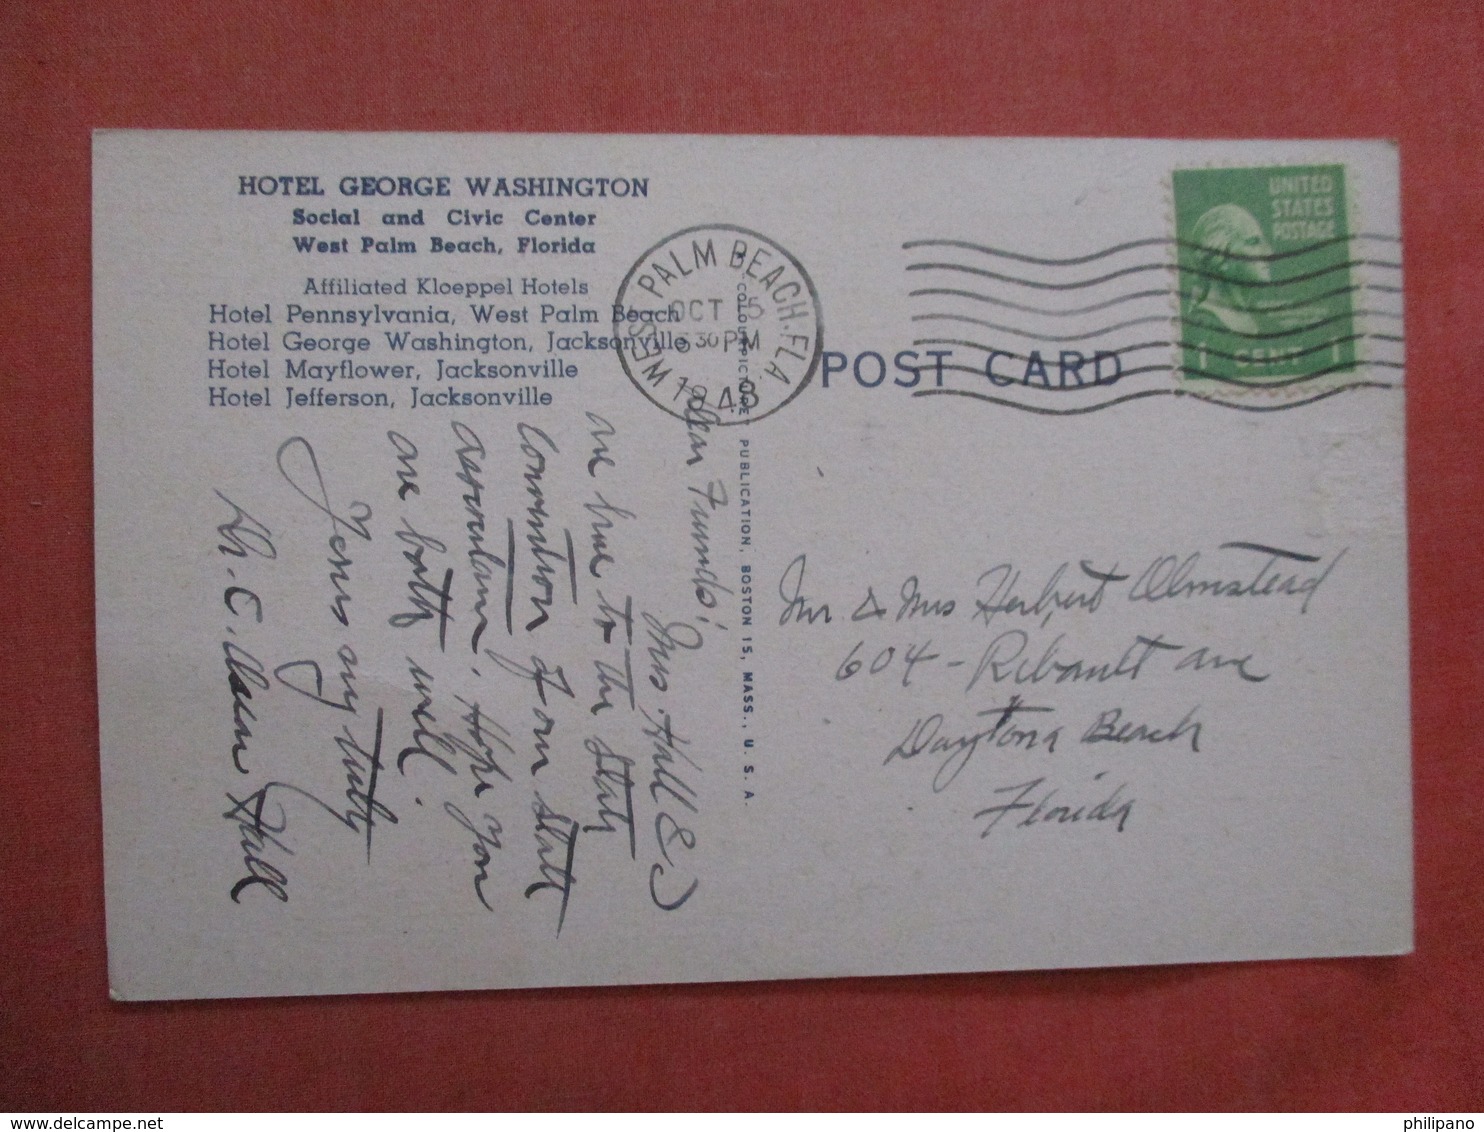 HOTEL GEORGE WASHINGTON
Social and Civic Center
West Palm Beach, Florida
Affiliated Kloeppel Hotels
Hotel Pennsylvania, West Palm Beach
Hotel George Washington, Jacksonville
Hotel Mayflower, Jacksonville
Hotel Jefferson, Jacksonville
WEST PALM BEACH, FLA.
OCT 5
5 30 PM
1948
UNITED
STATES
POSTAGE
1 CENT 1
POST CARD
COLOURPICTURE PUBLICATION, BOSTON 15, MASS., U. S. A.
Dear Friends:
Mrs. Hall & I
are here to the State
Convention of our State
. Hope you
are both well.
Yours very truly
Hall
Mr & Mrs Herbert Olmstead
604 - Ribault Ave
Daytona Beach
Florida
philipano
delcampe.net